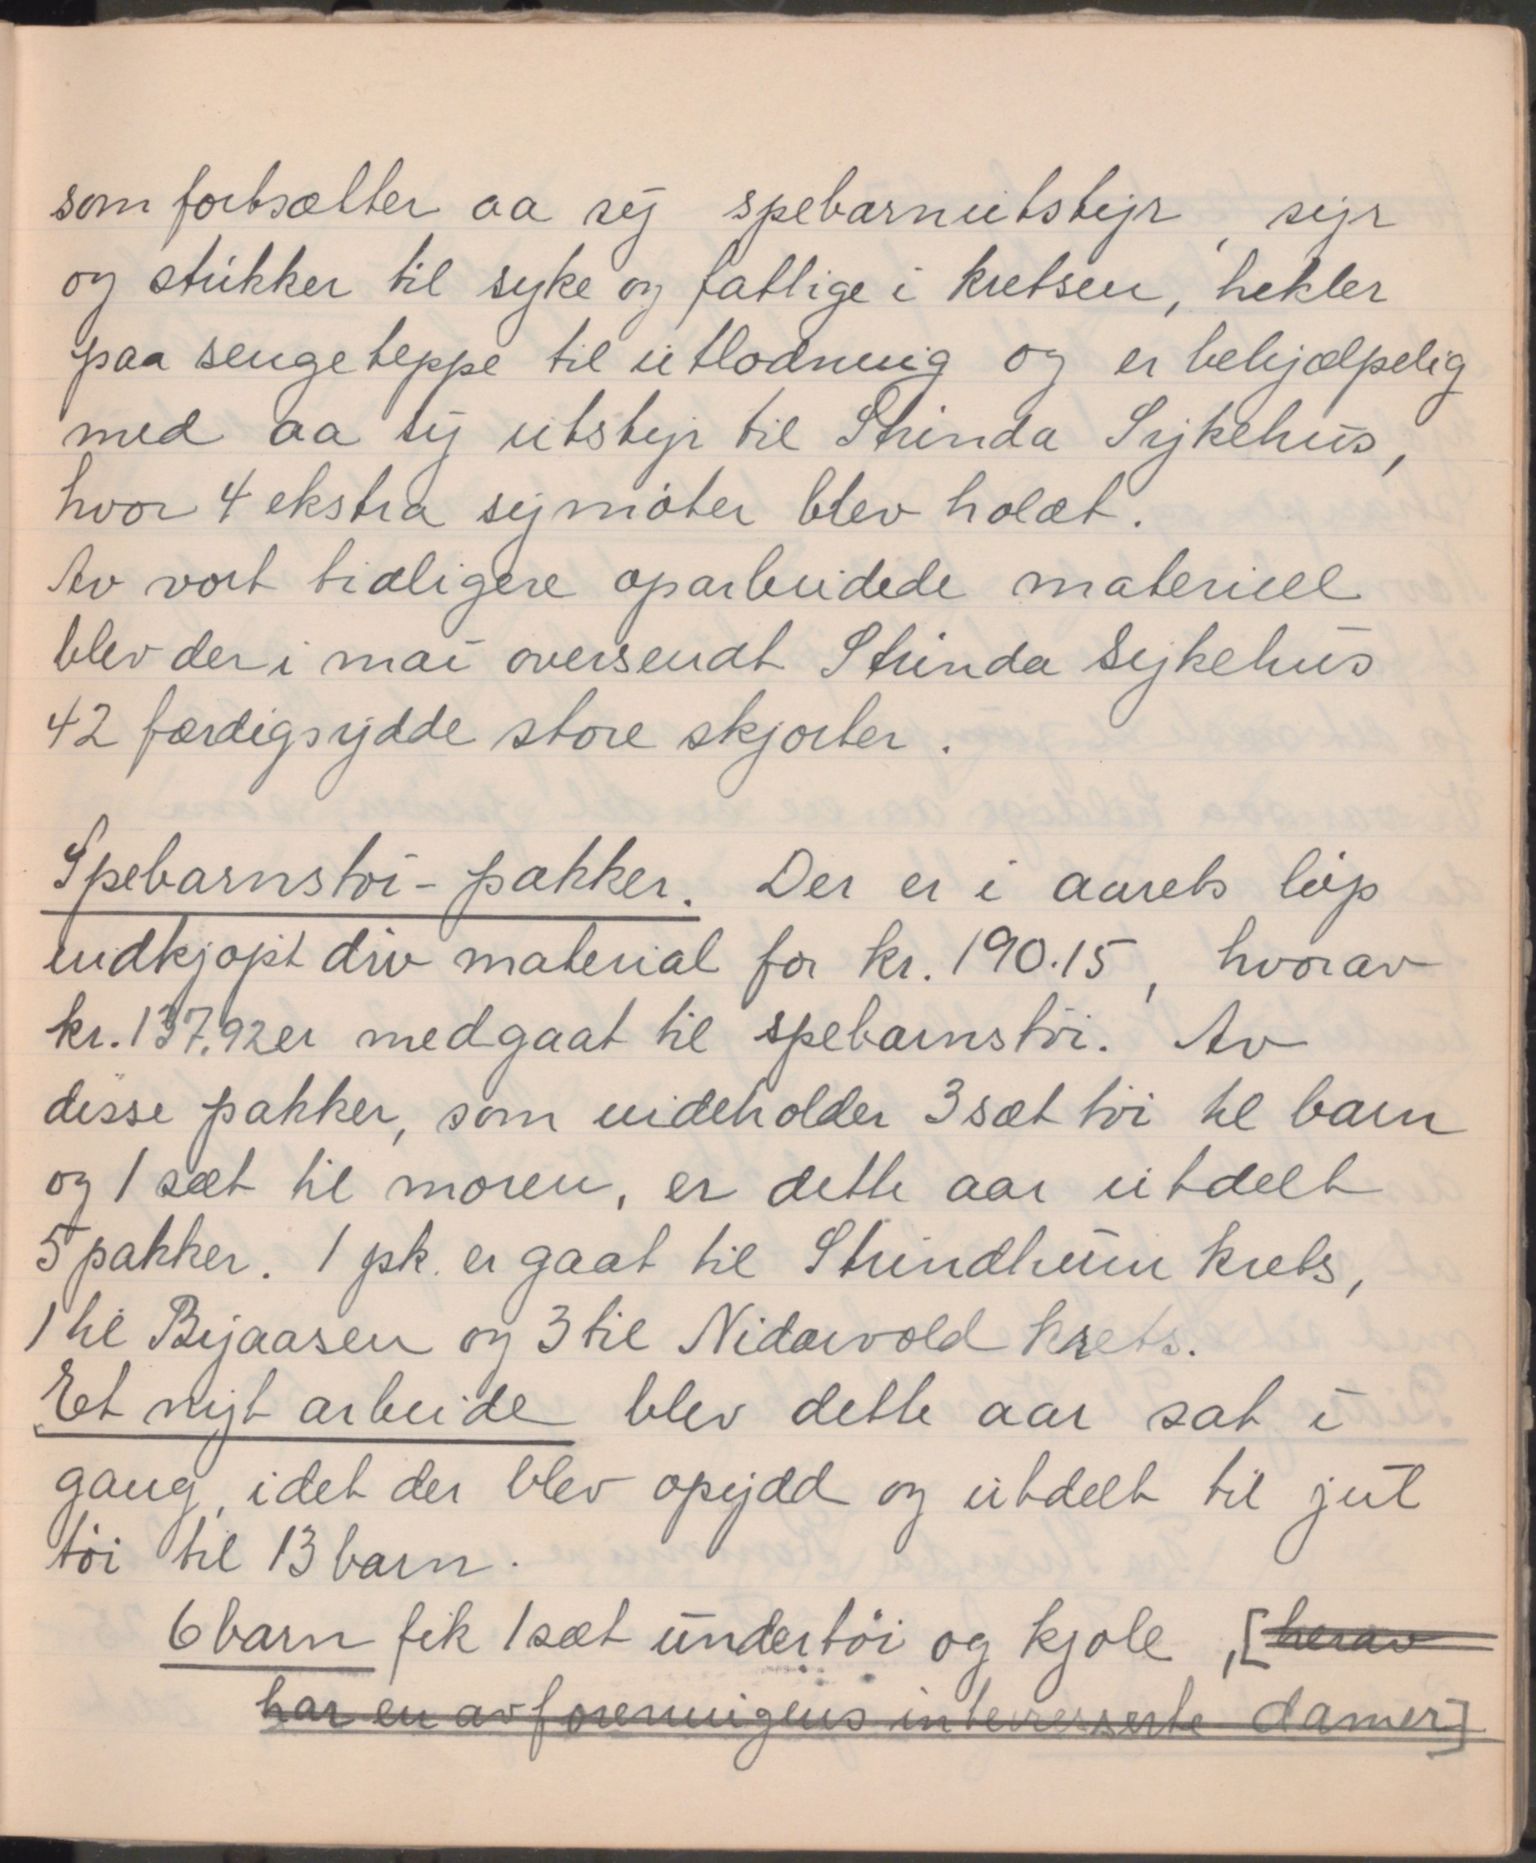 som fortsætter aa sy spebarnutstyr, syr
og strikker til syke og fattige i kretsen, hekler
paa sengeteppe til utlodning og er behjælpelig
med aa sy utstyr til Strinda Sykehus,
hvor 4 ekstra symöter blev holdt.
Av vort tidligere oparbeidede materiell
blev der i mai oversendt Strinda Sykehus
42 færdigsydde store skjorter.
Spebarnstöi-pakker. Der er i aarets löp
indkjöpt div material for kr. 190.15, hvorav
kr. 137.92 er medgaat til spebarnstöi. Av
disse pakker, som indeholder 3 sæt töi til barn
og 1 sæt til moren, er dette aar utdelt
5 pakker. 1 pk. er gaat til Strindheim krets,
1 til Byaasen og 3 til Nidarvold krets.
Et nyt arbeide blev dette aar sat i
gang, idet der blev opsydd og utdelt til jul
töi til 13 barn.
6 barn fik 1 sæt undertöi og kjole, [herav
har en av foreningens interesserte damer]